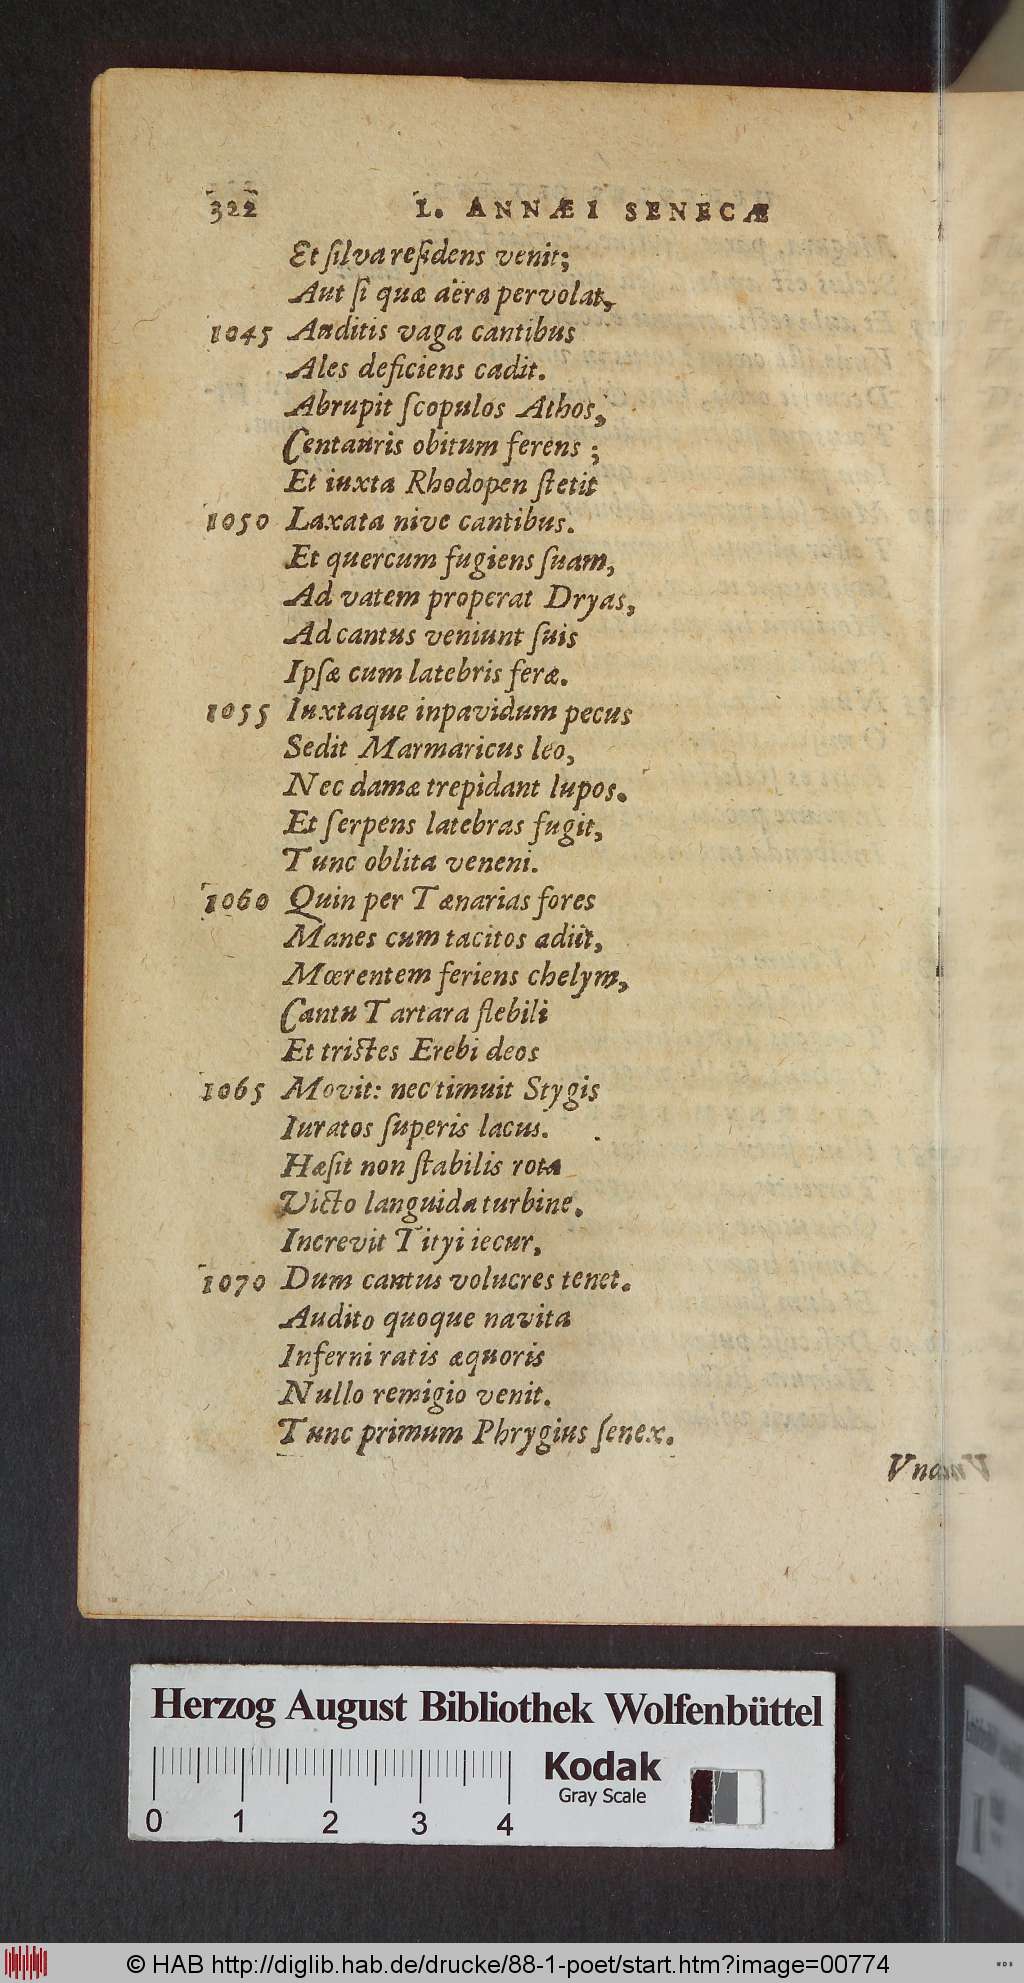 322 L. ANNÆI SENECÆ
Et ſilva reſidens venit;
Aut ſi quæ aëra pervolat,
1045 Auditis vaga cantibus
Ales deficiens cadit.
Abrupit ſcopulos Athos,
Centauris obitum ferens ;
Et iuxta Rhodopen ſtetit
1050 Laxata nive cantibus.
Et quercum fugiens ſuam,
Ad vatem properat Dryas,
Ad cantus veniunt ſuis
Ipſæ cum latebris feræ.
1055 Iuxtaque inpavidum pecus
Sedit Marmaricus leo,
Nec damæ trepidant lupos.
Et ſerpens latebras fugit,
Tunc oblita veneni.
1060 Quin per Tænarias fores
Manes cum tacitos adiit,
Mœrentem feriens chelym,
Cantu Tartara flebili
Et triſtes Erebi deos
1065 Movit: nec timuit Stygis
Iuratos ſuperis lacus.
Hæſit non ſtabilis rota
Victo languida turbine.
Increvit Tityi iecur,
1070 Dum cantus volucres tenet.
Audito quoque navita
Inferni ratis æquoris
Nullo remigio venit.
Tunc primum Phrygius ſenex.
Vnam
Herzog August Bibliothek Wolfenbüttel
0 1 2 3 4
Kodak
Gray Scale
© HAB http://diglib.hab.de/drucke/88-1-poet/start.htm?image=00774